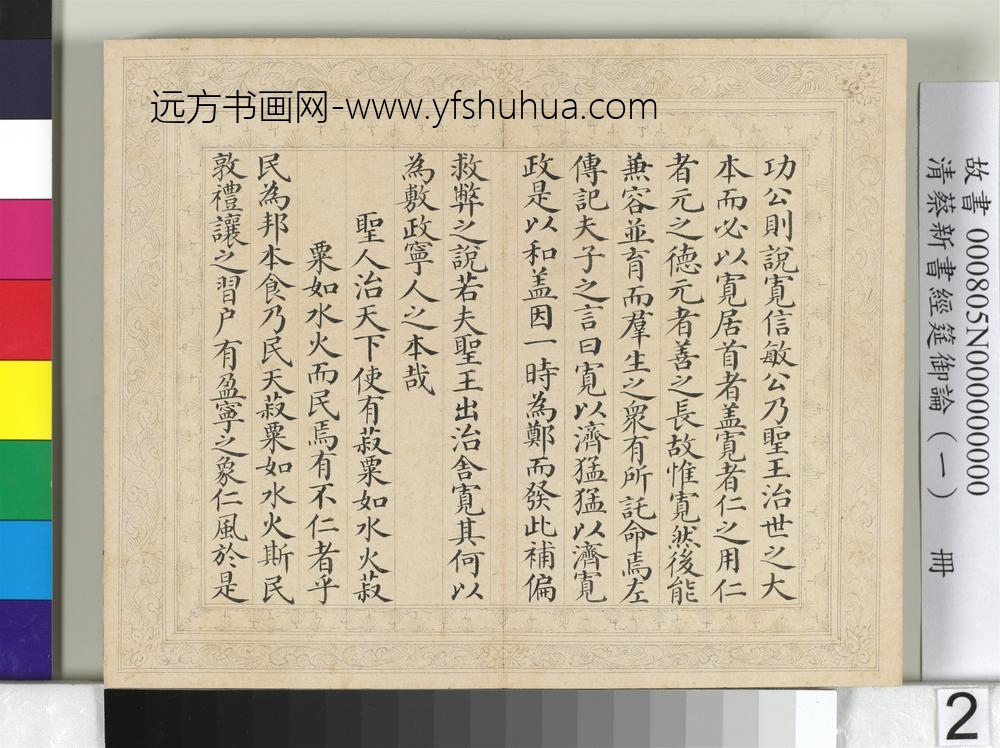 远方书画网-www.yfshuhua.com
功公則說寛信敏公乃聖王治世之大
本而必以寛居首者盖寛者仁之用仁
者元之德元者善之長故惟寛然後能
兼容並育而羣生之衆有所託命焉左
傳記夫子之言曰寛以濟猛猛以濟寛
政是以和盖因一時為鄭而發此補偏
救弊之說若夫聖王出治舍寛其何以
為敷政寧人之本哉
聖人治天下使有菽粟如水火菽
粟如水火而民焉有不仁者乎
民為邦本食乃民天菽粟如水火斯民
敦禮讓之習户有盈寧之象仁風於是
故書 000805N000000000
清蔡新書經筵御論(一) 冊
2